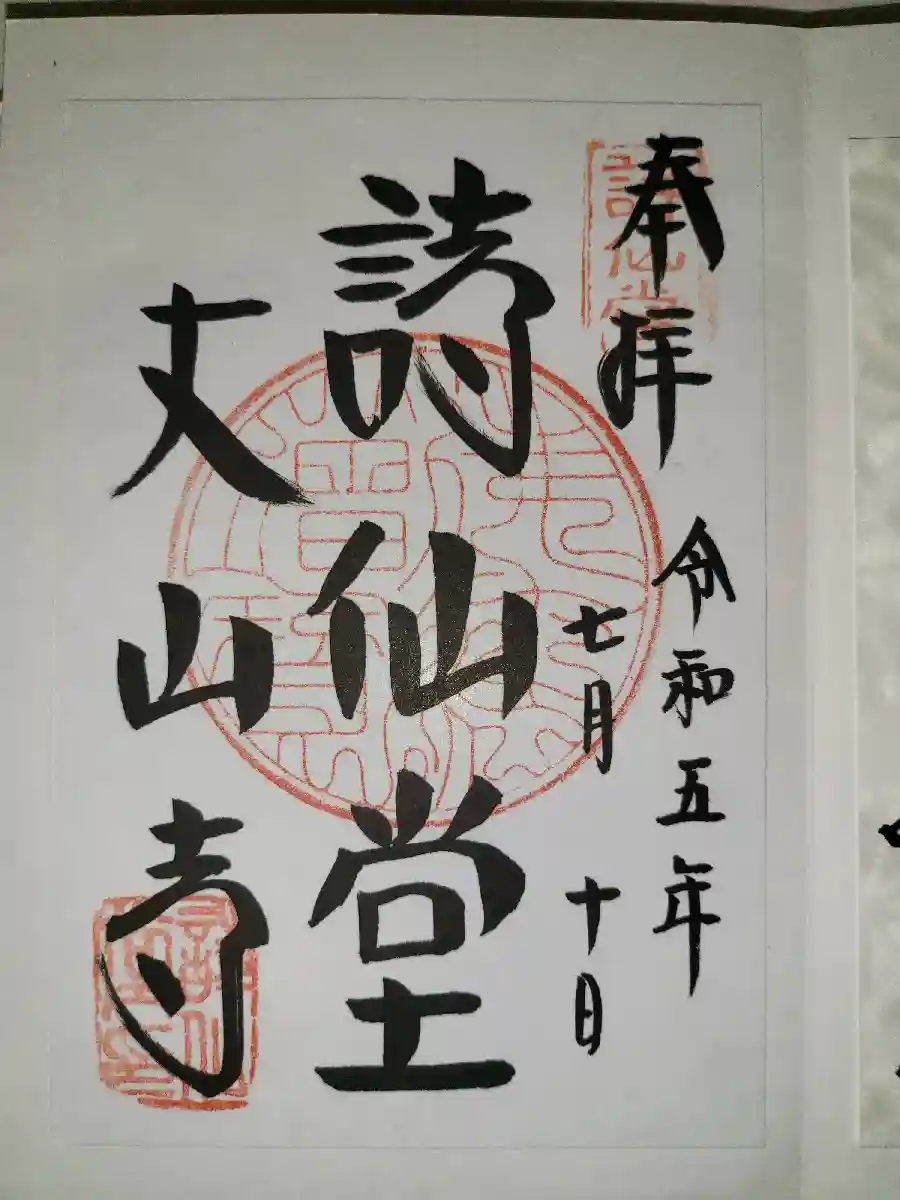 奉拝
令和五年
七月十日
詩仙堂
丈山寺
詩仙堂